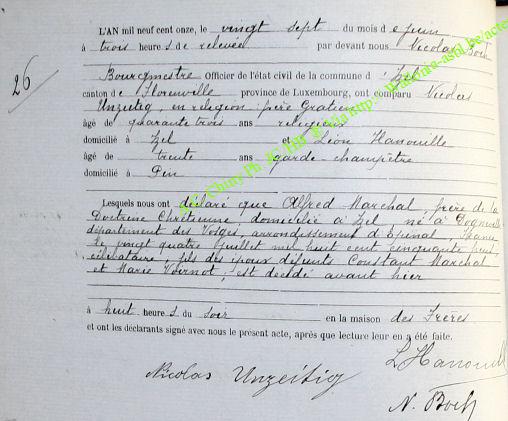 26
L'AN mil neuf cent onze, le vingt sept du mois de juin
à trois heure s de relevée par devant nous Nicolas Bock
Bourgmestre Officier de l'état civil de la commune d' Izel
canton de Florenville province de Luxembourg, ont comparu Nicolas
Unzeitig, en religion : père Gratien
âgé de quarante trois ans religieux
domicilié à Izel et Léon Hanouille
âgé de trente ans garde champêtre
domicilié à Pin
Lesquels nous ont déclaré que Alfred Marchal, frère de la
Doctrine Chrétienne domicilié à Izel né à
département des Vosges, arrondissement d'Epinal France
le vingt quatre Juillet mil huit cent cinquante
célibataire, fils des époux défunts Constant Marchal
et Marie Voirnot, est décédé avant hier
à huit heure s du soir en la maison des Frères
et ont les déclarants signé avec nous le présent acte, après que lecture leur en a été faite.
L Hanouille
Nicolas Unzeitig
N. Bock